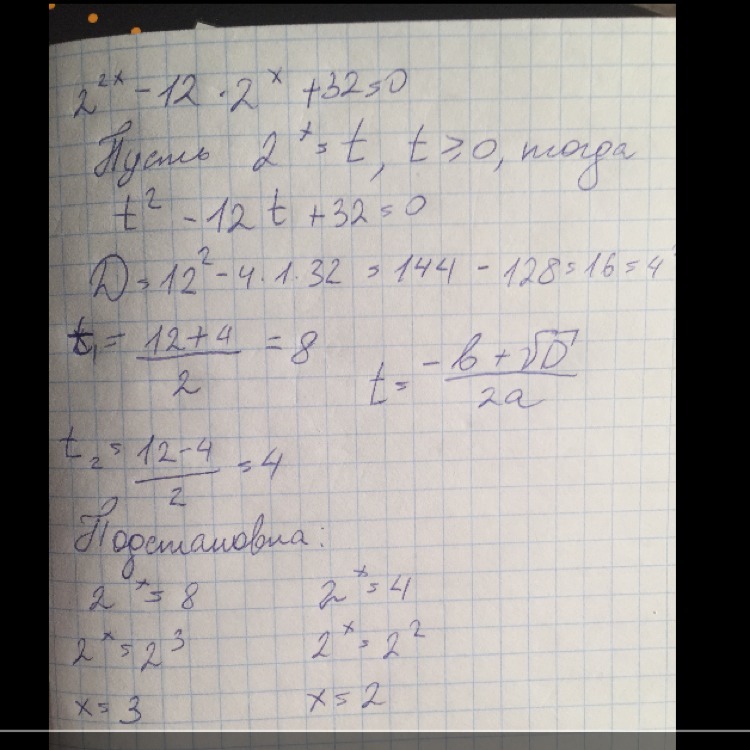 2^{2x} - 12 · 2^x + 32 = 0
Пусть 2^x = t, t ≥ 0, тогда
t^2 - 12t + 32 = 0
D = 12^2 - 4 · 1 · 32 = 144 - 128 = 16 = 4
t_1 = \frac{12+4}{2} = 8
t = \frac{-b + \sqrt{D}}{2a}
t_2 = \frac{12-4}{2} = 4
Подстановка:
2^x = 8 2^x = 4
2^x = 2^3 2^x = 2^2
x = 3 x = 2